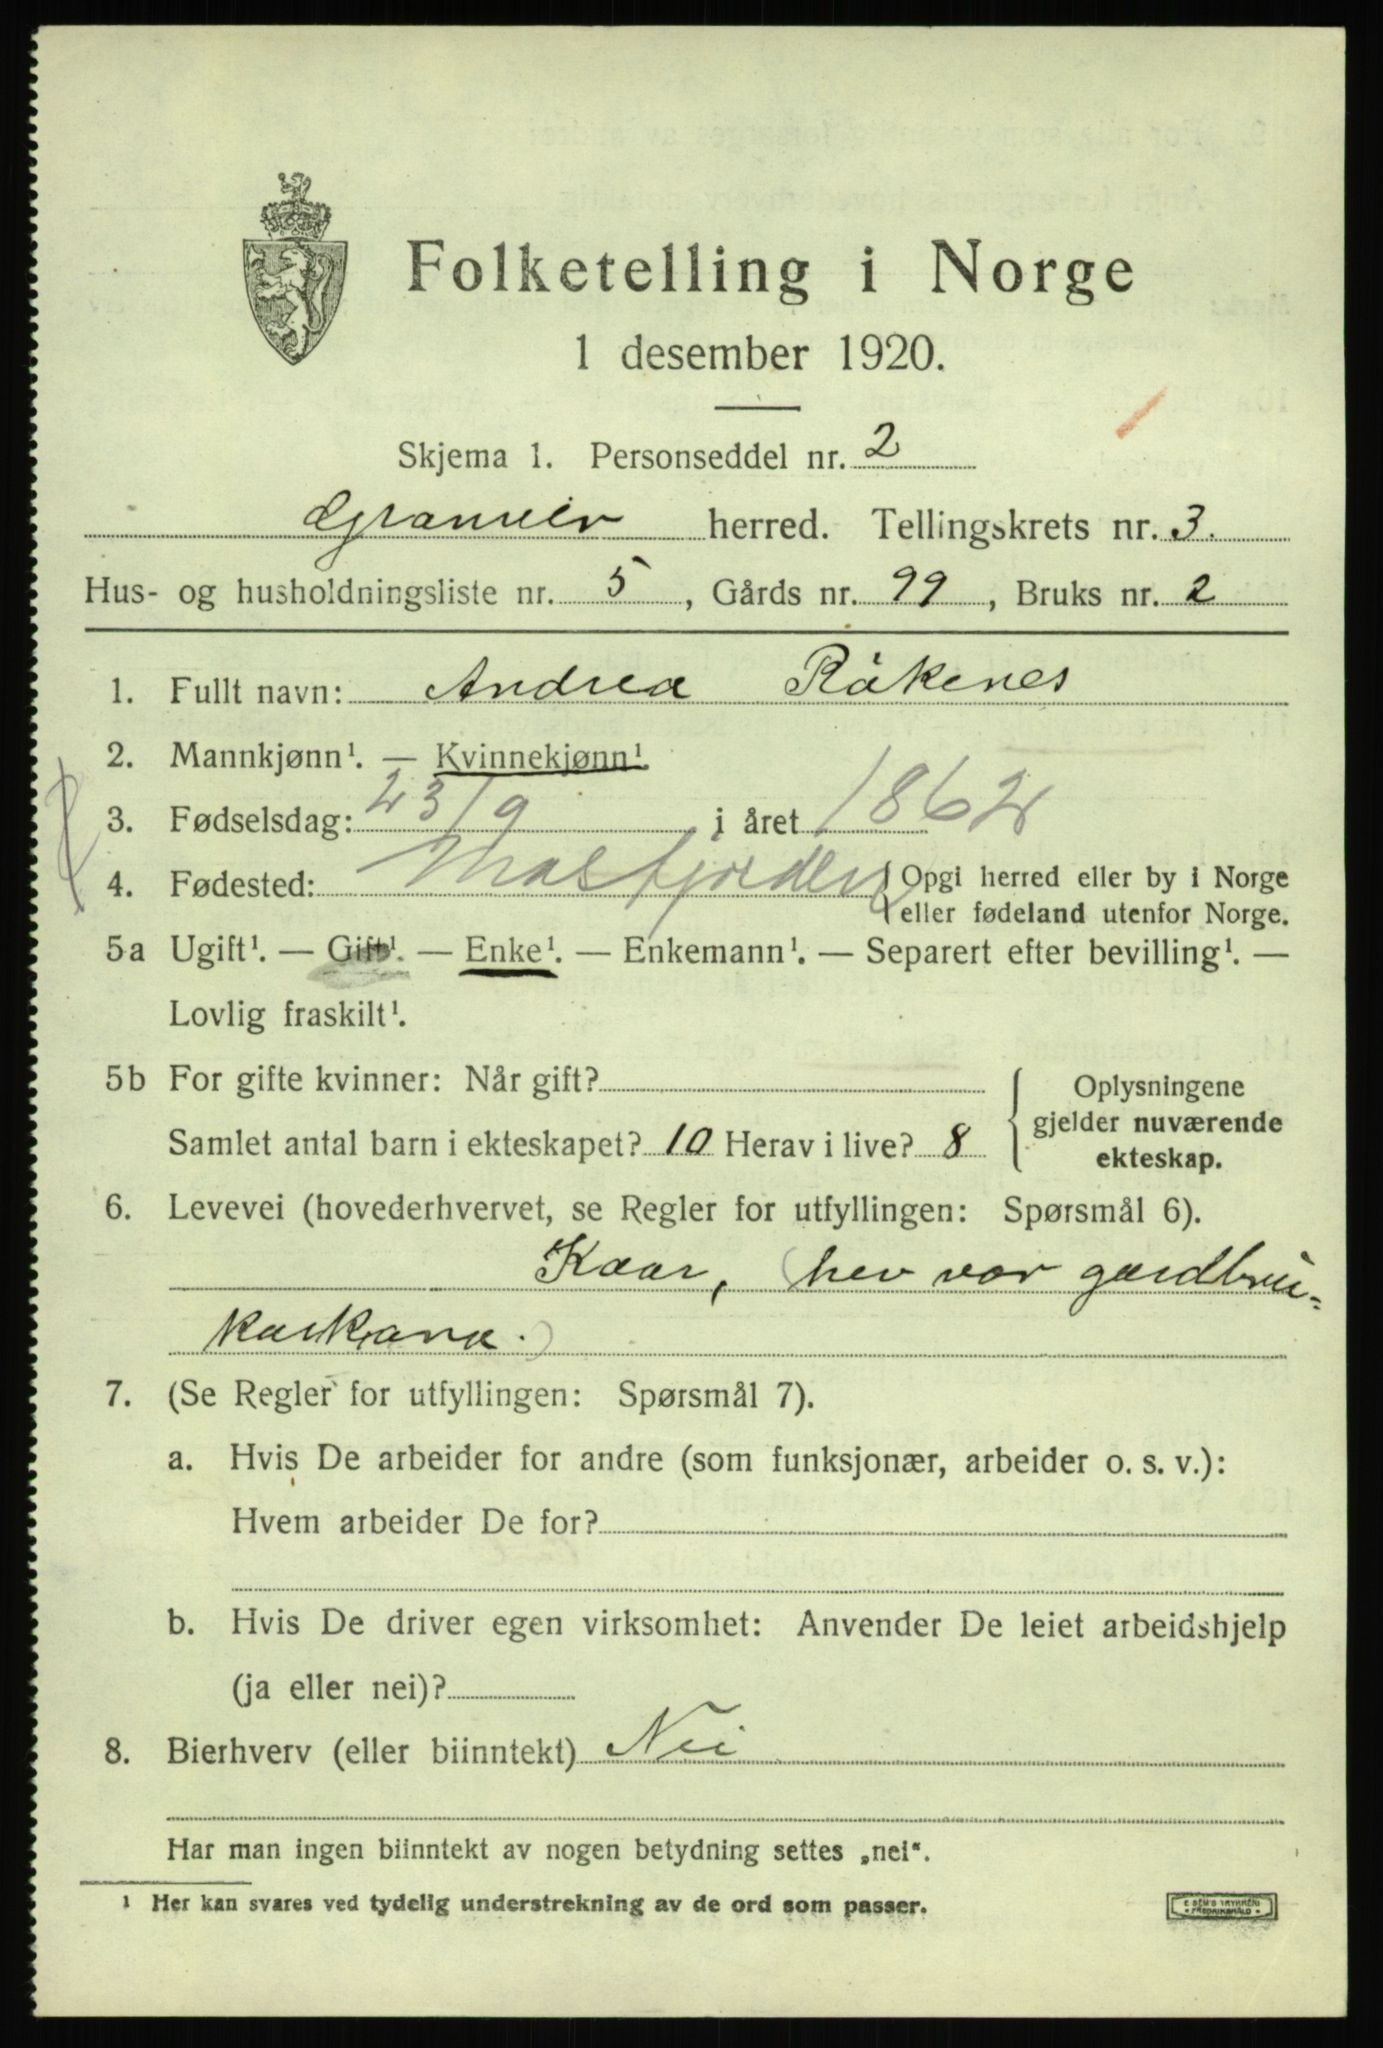 Folketelling i Norge
1 desember 1920.
Skjema 1. Personseddel nr. 2
herred. Tellingskrets nr. 3.
Hus- og husholdningsliste nr. 5, Gårds nr. 99, Bruks nr. 2
1. Fullt navn: Andrea Råkenes
2. Mannkjønn¹. — Kvinnekjønn¹.
3. Fødselsdag: 23/9 i året 1862
4. Fødested: Masfjorden {Opgi herred eller by i Norge
eller fødeland utenfor Norge.
5a Ugift¹. — Gift¹. — Enke¹. — Enkemann¹. — Separert efter bevilling¹. —
Lovlig fraskilt¹.
5b For gifte kvinner: Når gift?
Samlet antal barn i ekteskapet? 10 Herav i live? 8
Oplysningene
gjelder nuværende
ekteskap.
6. Levevei (hovederhvervet, se Regler for utfyllingen: Spørsmål 6).
Kaar, (hev vor gardbru-
karkona.)
7. (Se Regler for utfyllingen: Spørsmål 7).
a. Hvis De arbeider for andre (som funksjonær, arbeider o. s. v.):
Hvem arbeider De for?
b. Hvis De driver egen virksomhet: Anvender De leiet arbeidshjelp
(ja eller nei)?
8. Bierhverv (eller biinntekt) Nei
Har man ingen biinntekt av nogen betydning settes „nei“.
¹ Her kan svares ved tydelig understrekning av de ord som passer.